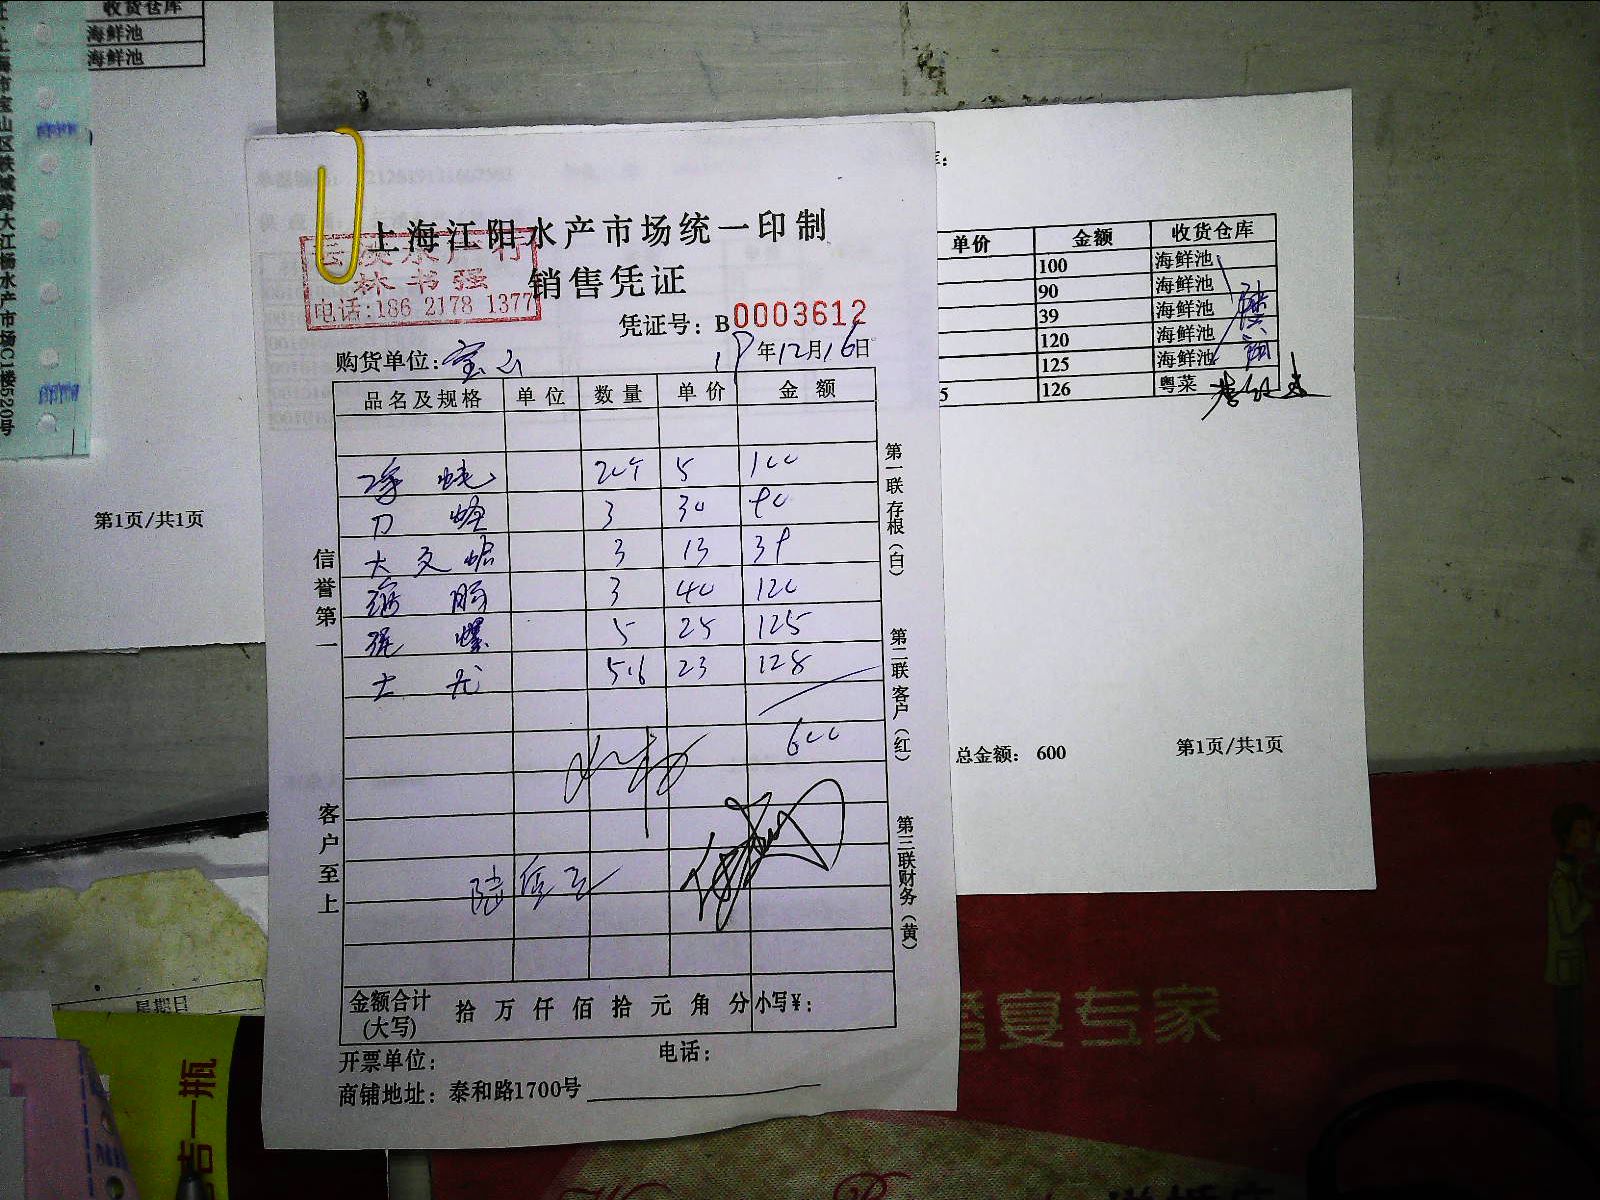 收货仓库
海鲜池
海鲜池
上海市宝山区铁城路大江杨水产市场C1楼520号
第1页/共1页
上海江阳水产市场统一印制
销售凭证
水产行
林书强
电话:186 2178 1377
凭证号: B0003612
购货单位: 宝山
19年12月16日
品名及规格 单位 数量 单价 金额
20个 5 100
刀 3 30 90
大 3 13 39
3 40 120
螺 5 25 125
大 5.6 23 128
600
金额合计(大写) 拾 万 仟 佰 拾 元 角 分 小写¥:
开票单位: 电话:
商铺地址: 泰和路1700号
信誉第一
客户至上
第一联存根(白)
第二联客户(红)
第三联财务(黄)
单价 金额 收货仓库
100 海鲜池
90 海鲜池
39 海鲜池
120 海鲜池
125 海鲜池
5 126 粤菜
总金额: 600 第1页/共1页
星期日
一瓶
婚宴专家